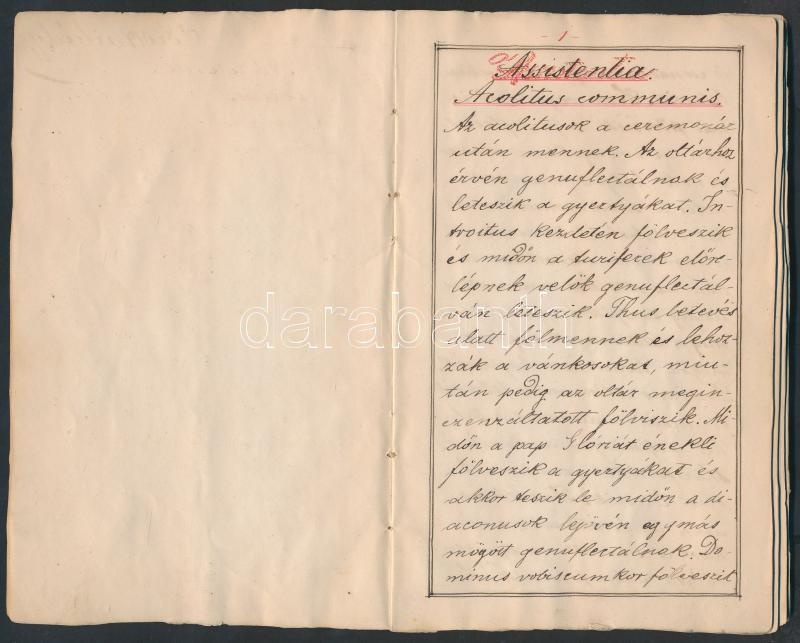 - 1 -
Assistentia.
Acolitus communis.
Az acolitusok a ceremoniár
után mennek. Az oltárhoz
érvén genuflectálnak és
leteszik a gyertyákat. In-
troitus kezdetén fölveszik
és midőn a turiferek előre-
lépnek velök genuflectál-
ván leteszik. Thus betevés
alatt fölmennek és lehoz-
zák a vánkosokat, miu-
tán pedig az oltár megin-
cenzáltatott fölviszik. Mi-
dőn a pap Glóriát énekli
fölveszik a gyertyákat és
akkor teszik le midőn a di-
aconusok lejövén egymás
mögött genuflectálnak. Do-
minus vobiscumkor fölveszik
darabanth